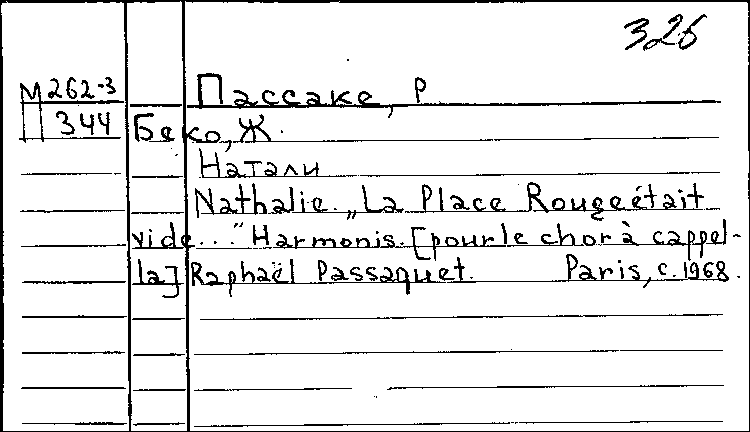 326
М 262-3
344
Пассаке, Р
Беко, Ж.
Натали
Nathalie. „La Place Rouge était
vide..." Harmonis. [pour le chor à cappel-
la] Raphaël Passaquet. Paris, c. 1968.